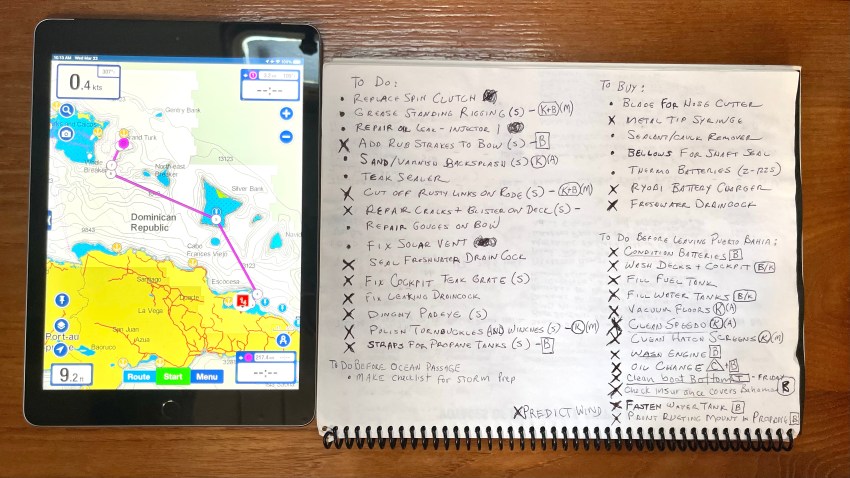 10:15 AM Wed Mar 23
0.4 kts
307°
--:--
Gentry Bank
Grand Turk
North-east
Breaker
13123
Silver Bank
Dominican
Republic
9843
Cabo
Frances Viejo
13123
Escocesa
Santiago
La Vega
San Juan
Azua
Baoruco
Port-au
9.2 ft
Route
Start
Menu
--:--
To Do:
• Replace Spin Clutch
• Grease Standing Rigging (S) - K+B (M)
• Repair Oil Leak - Injector 1
X Add Rub Strakes to Bow (S) - B
• Sand/Varnish Backsplash (S) K (A)
• Teak Sealer
X Cut Off Rusty Links on Rode (S) - K+B (M)
X Repair Cracks + Blister on Deck (S) -
• Repair Gouges on Bow
• Fix Solar Vent
X Seal Freshwater Drain Cock
X Fix Cockpit Teak Grate (S)
X Fix Leaking Draincock
X Dinghy Padeye (S)
X Polish Turnbuckles and Winches (S) - K (M)
X Straps for Propane Tanks (S) - B
To Do Before Ocean Passage
• Make Checklist for Storm Prep
X Predict Wind
To Buy:
• Blade for Nose Cutter
X Metal Tip Syringe
• Sealant/Caulk Remover
• Bellows for Shaft Seal
• Thermo Batteries
X Ryobi Battery Charger
X Freshwater Draincock
To Do Before Leaving Puerto Bahia:
X Condition Batteries B
X Wash Decks + Cockpit B/K
X Fill Fuel Tank
X Fill Water Tanks B/K
X Vacuum Floors K (A)
X Clean Speedo K (A)
X Clean Hatch Screens K (M)
X Wash Engine B
X Oil Change + B
X Clean boat Bottom - Friday
X Check insurance covers Bahamas B
X Fasten Water Tank B
X Paint Rusting Mount in Propane B